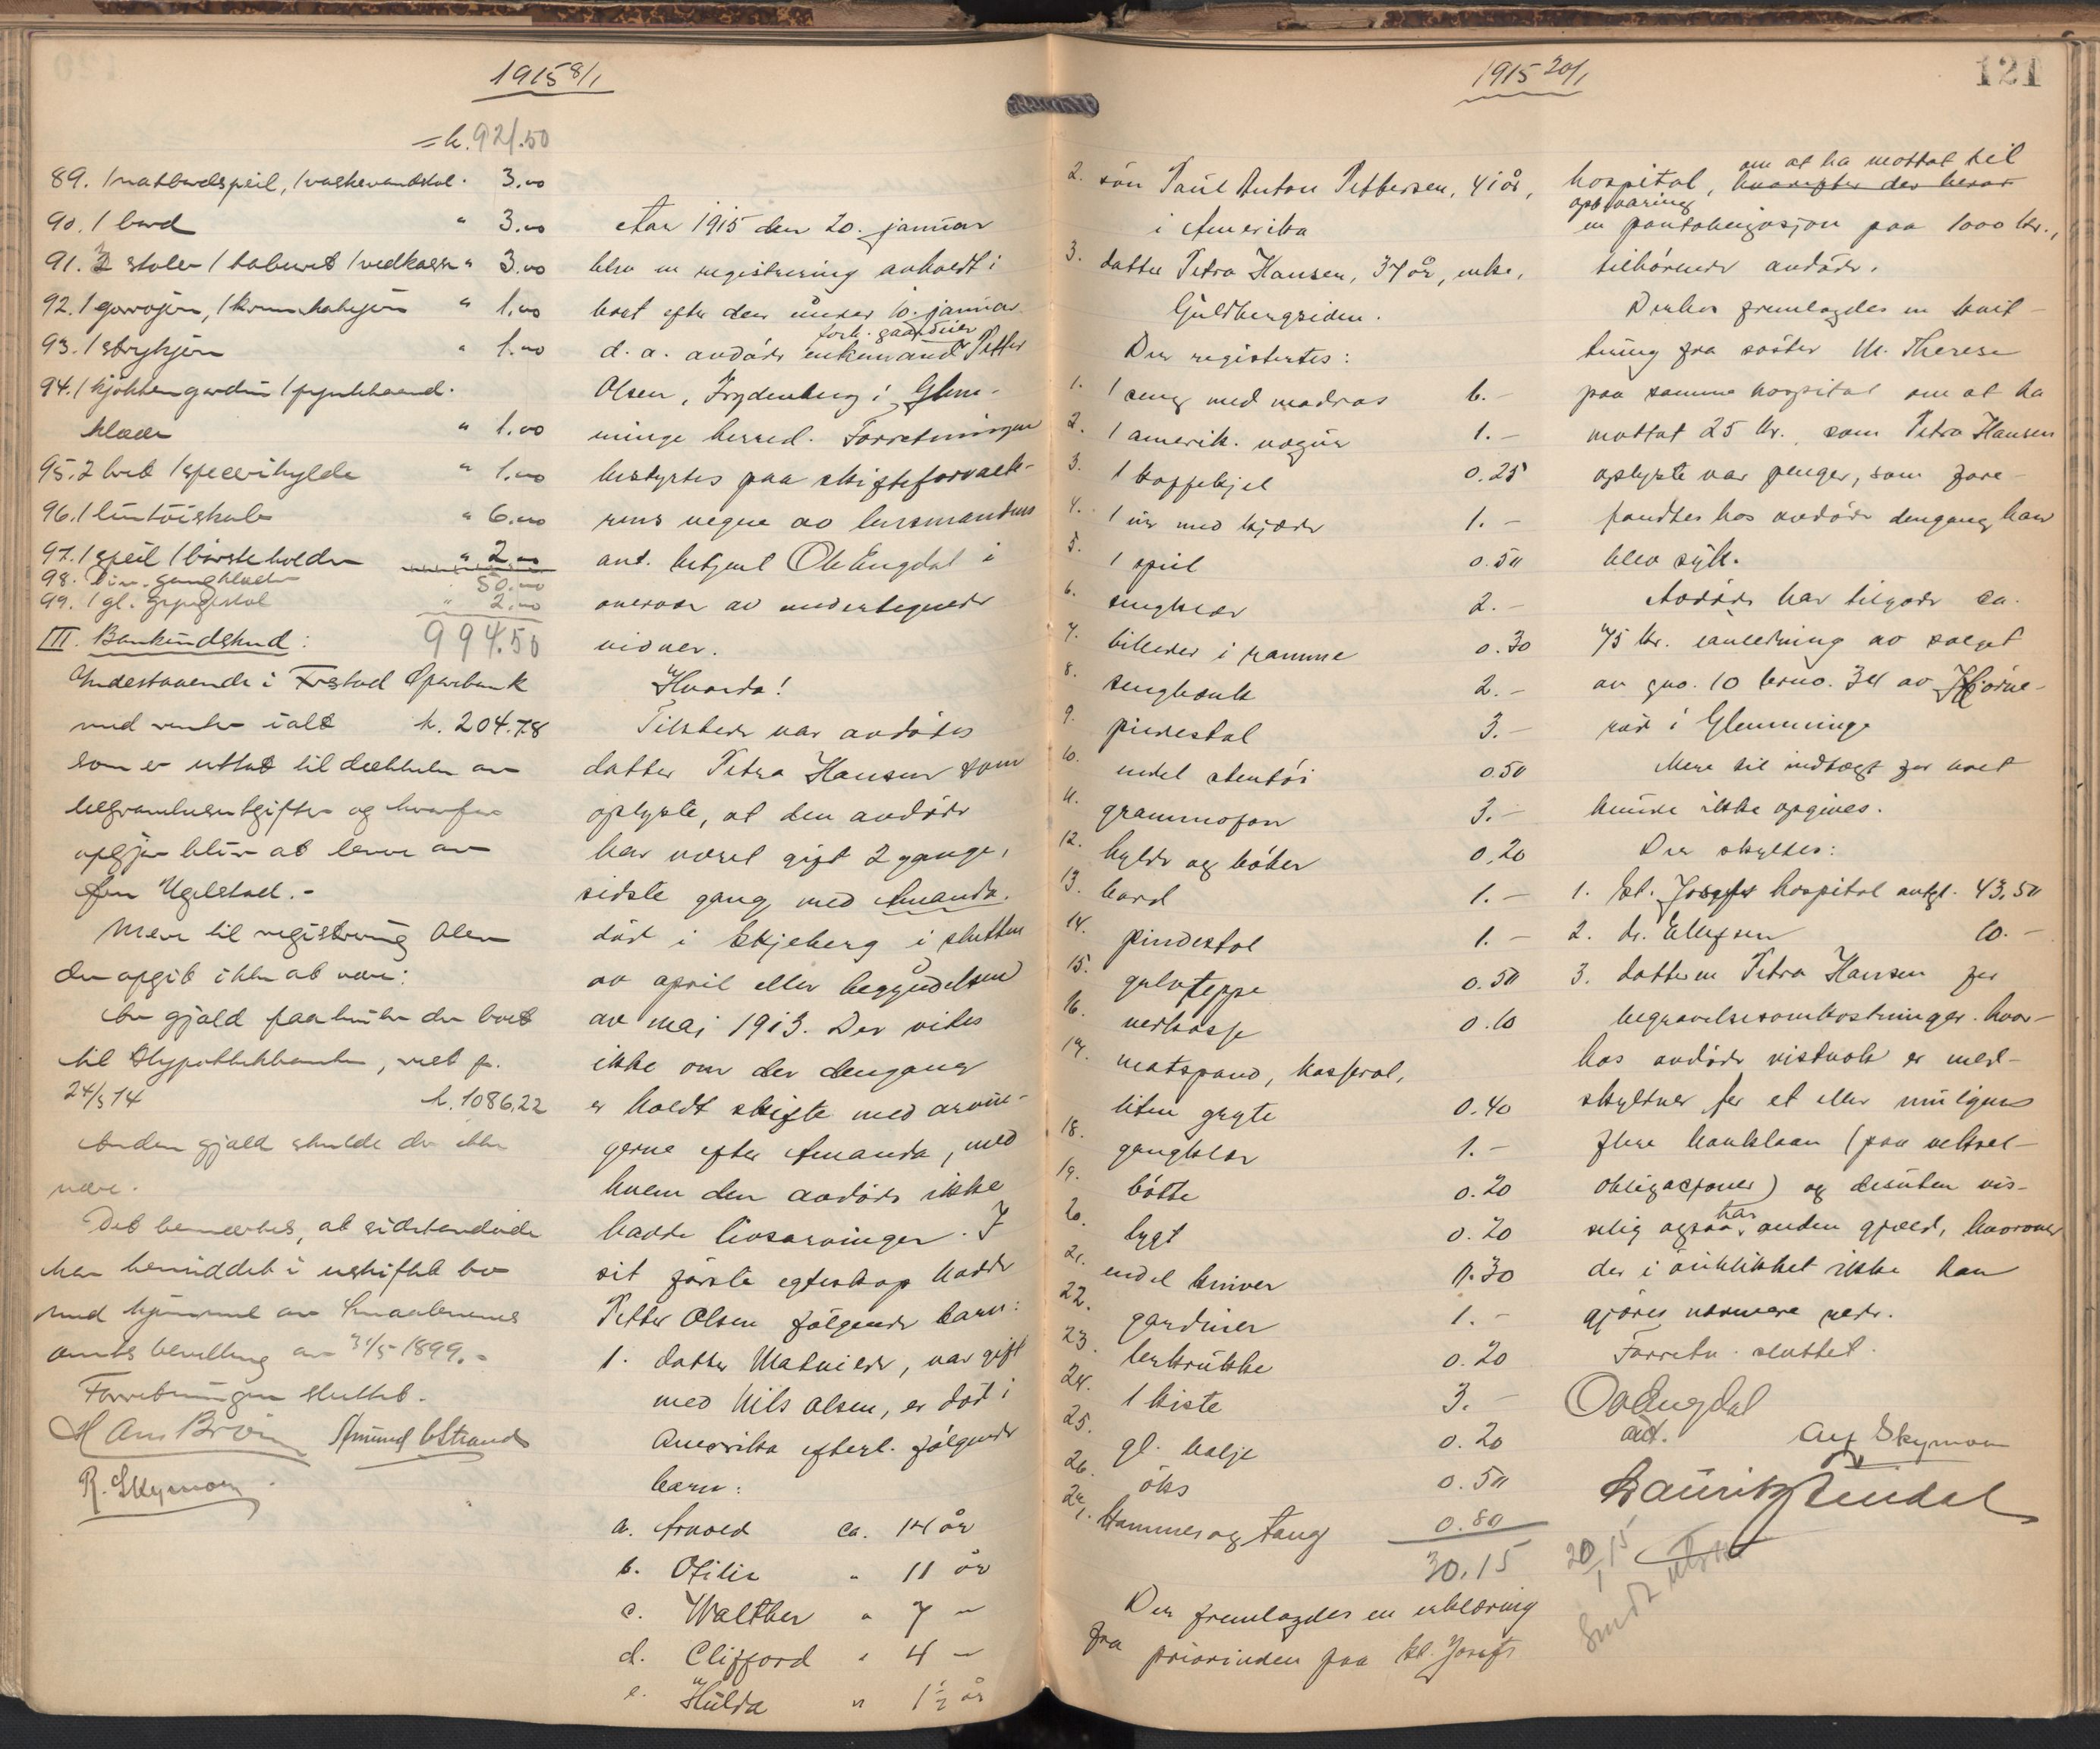 1915 8/1
= k. 921.50
89. 1 natbordspeil, 1 vaskevandstol. 3.00
90. 1 bord " 3.00
91. 3 stoler 1 taburet 1 vedkasse " 3.00
92. 1 " 1.00
93. 1 strykejern " 1.00
94. 1 kjøkkengardin 1 pynthaand-
klæer " 1.00
95. 2 bret 1 speceri hylde " 1.00
96. 1 lintöiskab " 6.00
97. 1 speil 1 börsteholder " 2.00
98. Div. gangklæder 50.00
99. 1 gl. gyngestol " 2.00
III. Bankindskud: 994.50
Indestaaende i Fr.stad Sparebank
med renter ialt k. 204.78
som er uttat til dækkelse av
begravelsesutgifter og hvorfor
opgjør blir at levere av
fru Ugelstad.-
Mere til registrering blev
der opgit ikke at være:
Av gjæld paahviler der boet
til Hypothekbanken, rest pr.
24/5 14 k. 1086.22
Anden gjæld skulde der ikke
være.
Det bemerkes, at sidstavdøde
har hensiddet i uskiftet bo
med hjemmel av Smaalenenes
amts bevilling av 31/5 1899.-
Forretningen sluttet.
H Amund Strand
R. Skymoen
Aar 1915 den 20. januar
blev en registrering avholdt i
boet efter den under 10. januar
d. a. avdöde enkemand forh. gaardeier Petter
Olsen, Frydenberg i Glem-
minge herred. Forretningen
bestyrtes paa skifteforvalte-
rens vegne av lensmandens
aut. betjent Ole Engdal i
overvær av undertegnede
vidner.
Hvorda!
Tilstede var avdödes
datter Petra Hansen som
oplyste, at den avdöde
har været gift 2 gange,
sidste gang med Amanda.
död i Skjeberg i slutten
av april eller begyndelsen
av mai 1913. Der vites
ikke om der dengang
er holdt skifte med arvin-
gerne efter Amanda, med
hvem den avdöde ikke
hadde livsarvinger. I
sit förste egteskap hadde
Petter Olsen fölgende barn:
1. datter Matilde, var gift
med Nils Olsen, er död i
Amerika efterl. fölgende
barn:
a. Arnold ca. 14 år
b. Otilie " 11 år
c. Walther " 7 "
d. Clifford " 4 "
e. Hulda " 1½ år
1915 20/1
121
2. sön Paul Anton Pettersen, 41 år,
i Amerika
3. datter Petra Hansen, 37 år, enke,
Guldbergsiden.
Der registertes:
1. 1 seng med madras 6.-
2. 1 amerik. vogur 1.-
3. 1 kaffekjel 0.25
4. 1 ur med kjæde 1.-
5. 1 speil 0.50
6. sengklær 2.-
7. billeder i ramme 0.30
8. sengbænk 2.-
9. pinnestol 3.-
10. endel stentöi 0.50
11. grammofon 3.-
12. hylde og böker 0.20
13. bord 1.-
14. pindestol 1.-
15. gulvteppe 0.50
16. vedkasse 0.10
17. matspand, kasserol,
liten gryte 0.40
18. gangklær 1.-
19. bötte 0.20
20. lygt 0.20
21. endel kniver 0.30
22. gardiner 1.-
23. lerkrukke 0.20
24. 1 kiste 3.-
25. gl. balje 0.20
26. öks 0.50
27. Hammer og tang 0.80
30.15
Der fremlagdes en erklæring
fra priorinden paa St. Josefs
hospital, hvorefter der beror om at ha mottat til
opbevaring
en pantobligasjon paa 1000 kr.,
tilhörende avdöde.
Derhos fremlagdes en kvit-
tering fra söster M. Therese
paa samme hospital om at ha
mottat 25 kr., som Petra Hansen
oplyste var penger, som fore-
fandtes hos avdöde dengang han
blev syk.
Avdöde har tilgode ca.
75 kr. i anledning av salget
av gno. 10 brno. 34 av Hjörne-
röd i Glemminge
Mere til indtægt for boet
kunde ikke opgives.
Der skyldtes:
1. St. Josefs hospital antgl. 43.50
2. dr. Ellefsen 10.-
3. datteren Petra Hansen for
begravelsesomkostninger. hvor-
hos avdöde vistnok er med-
skyldner for et eller muligens
flere banklaan (paa veksel-
obligasjoner) og desuten vis-
selig ogsaa har anden gjæld, hvorom
der i öieblikket ikke kan
gjöres nærmere rede.
Forretn. sluttet.
O. Engdal
aut. Alf Skymoen
Lauritz Lindal
20/1 15
Sendt utskr.